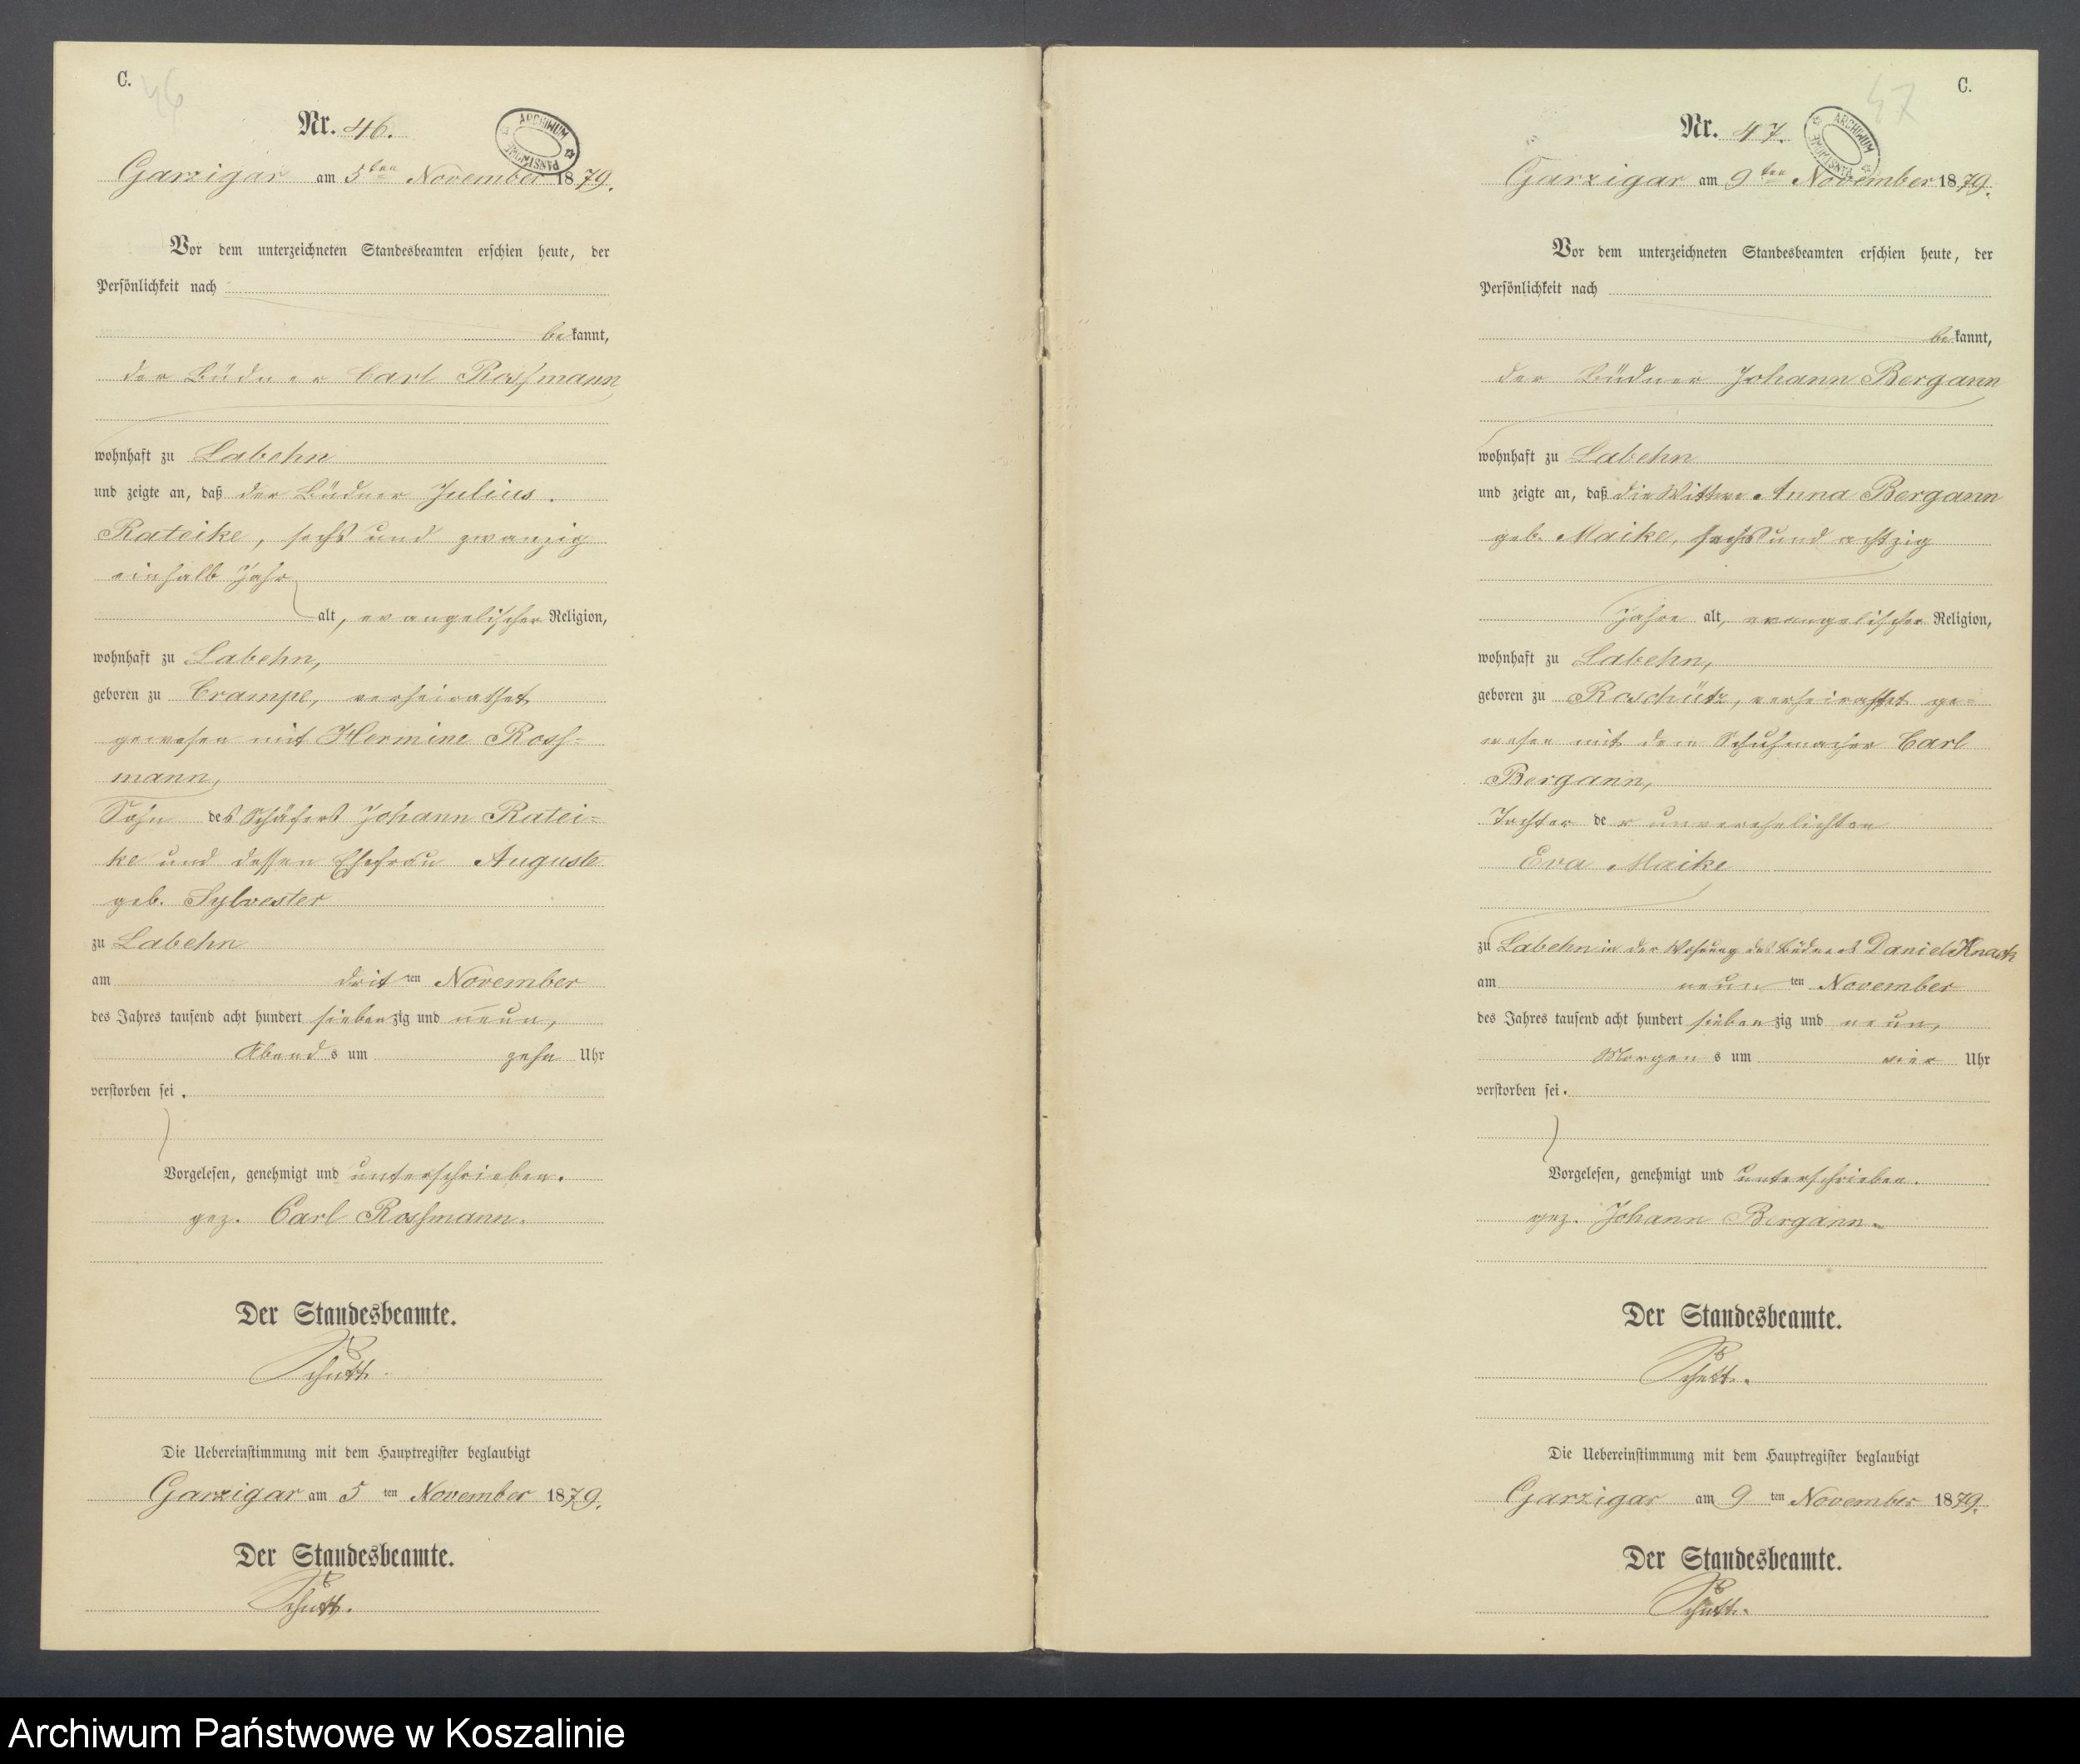 C.
46
Nr. 46.
ARCHIWUM PAŃSTWOWE
Garzigar am 5ten November 1879.
Vor dem unterzeichneten Standesbeamten erschien heute, der
Persönlichkeit nach
bekannt,
der Büdner Carl Rossmann
wohnhaft zu Labehn
und zeigte an, daß der Büdner Julius
Rateike, sechs und zwanzig
einhalb Jahr
alt, evangelischer Religion,
wohnhaft zu Labehn,
geboren zu Crampe, verheirathet
gewesen mit Hermine Ross=
mann,
Sohn des Schäfers Johann Ratei=
ke und dessen Ehefrau Auguste
geb. Sylvester
zu Labehn
am dritten November
des Jahres tausend acht hundert siebenzig und neun,
Abends um zehn Uhr
verstorben sei.
Vorgelesen, genehmigt und unterschrieben.
gez. Carl Rossmann.
Der Standesbeamte.
Schutt.
Die Uebereinstimmung mit dem Hauptregister beglaubigt
Garzigar am 5ten November 1879.
Der Standesbeamte.
Schutt.
C.
47
Nr. 47.
ARCHIWUM PAŃSTWOWE
Garzigar am 9ten November 1879.
Vor dem unterzeichneten Standesbeamten erschien heute, der
Persönlichkeit nach
bekannt,
der Büdner Johann Bergann
wohnhaft zu Labehn
und zeigte an, daß die Wittwe Anna Bergann
geb. Maike, sechs und achtzig
Jahre alt, evangelischer Religion,
wohnhaft zu Labehn,
geboren zu Roschütz, verheirathet ge=
wesen mit dem Schuhmacher Carl
Bergann,
Tochter der unverehelichten
Eva Maike
zu Labehn in der Wohnung des Büdners Daniel Knack
am neunten November
des Jahres tausend acht hundert siebenzig und neun,
Morgens um vier Uhr
verstorben sei.
Vorgelesen, genehmigt und unterschrieben.
gez. Johann Bergann.
Der Standesbeamte.
Schutt.
Die Uebereinstimmung mit dem Hauptregister beglaubigt
Garzigar am 9ten November 1879.
Der Standesbeamte.
Schutt.
Archiwum Państwowe w Koszalinie